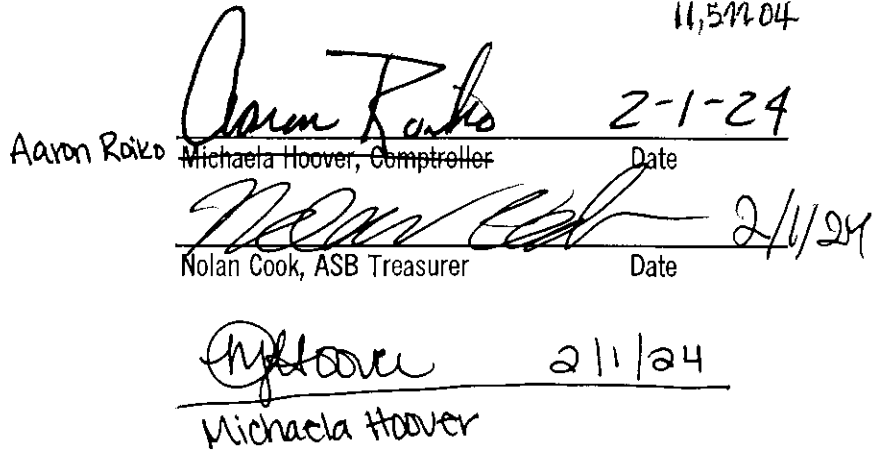 Aaron Raiko 2-1-24
Aaron Raiko Michaela Hoover, Comptroller Date
Nolan Cook 2/1/24
Nolan Cook, ASB Treasurer Date
MHoover 2/1/24
Michaela Hoover